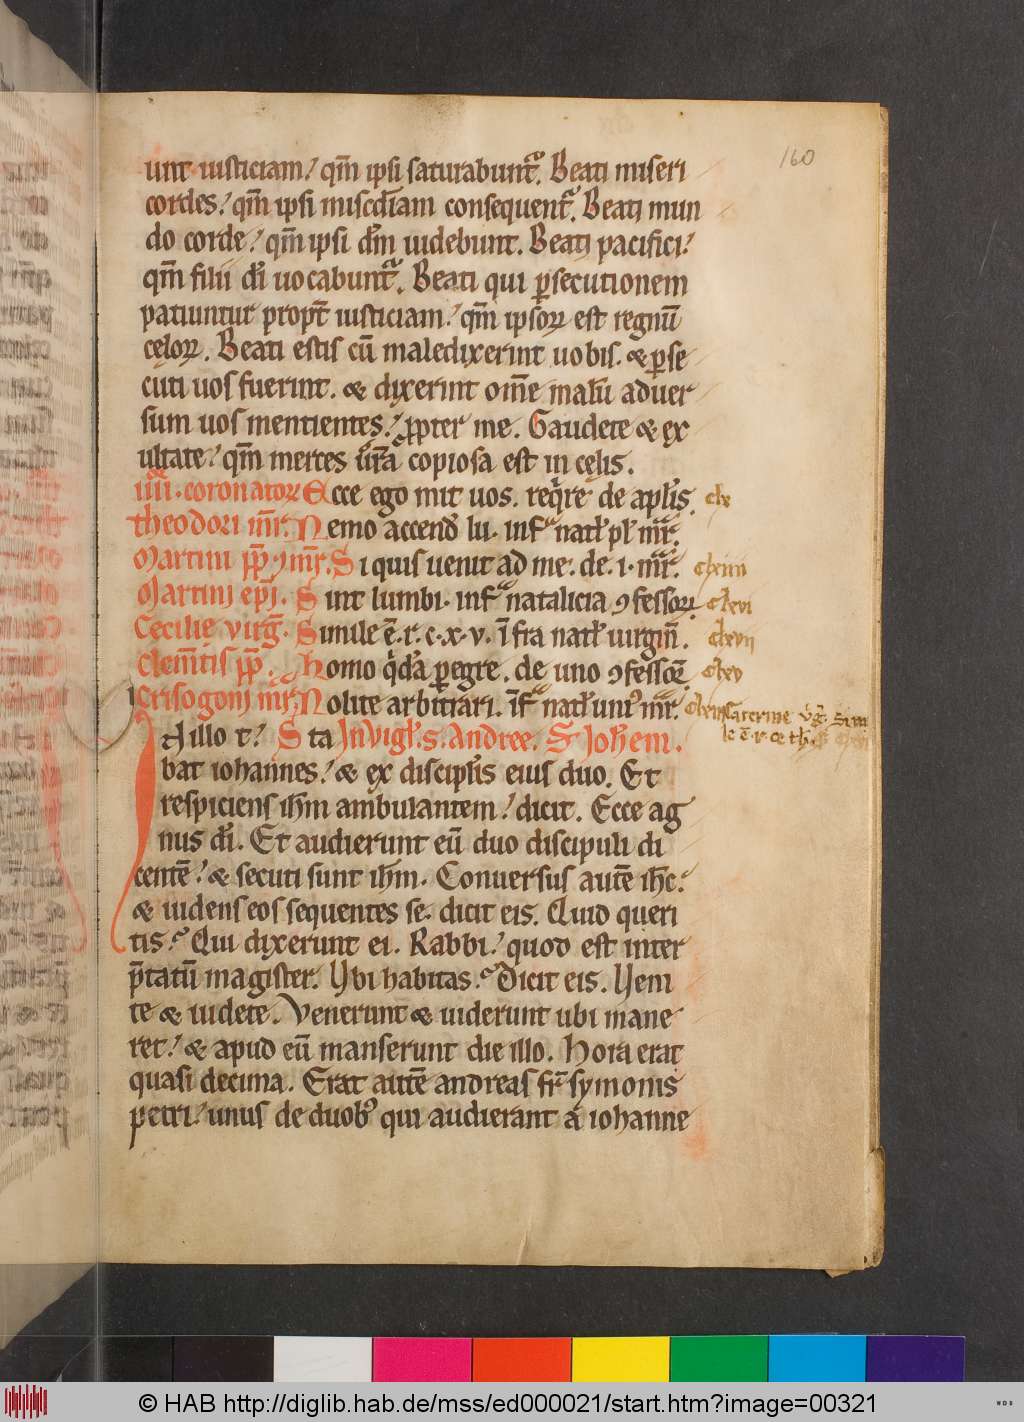 160
unt iusticiam; qm̄ ipsi saturabunt᷑. Beati miseri
cordes; qm̄ ipsi misc̄diam consequent᷑. Beati mun
do corde; qm̄ ipsi dm̄ uidebunt. Beati pacifici;
qm̄ filii di̅ uocabunt᷑. Beati qui ꝑsecutionem
patiuntur propt̄ iusticiam; qm̄ ipsoꝝ est regnū
cęloꝝ. Beati estis cū maledixerint uobis. & ꝑse
cuti uos fuerint. & dixerint om̄e malū aduer
sum uos mentientes; ꝓpter me. Gaudete & ex
ultate; qm̄ merces ur̄a copiosa est in cęlis.
iiii. coronatoꝝ Ecce ego mit uos. reqͥre de apłis. clx
Theodori mr̄. Nemo accend̄ lu. inf̄ᵃ natł pl mr̄.
Martini pp̄ ⁊ mr̄. Si quis uenit ad me. de. i. mr̄. clxiiii
Martini ep̄i. Sint lumbi. inf̄ᵃ natalicia ꝯfessoꝝ. clxvi
Cecilię virḡ. Simile ē. r. c. x. v. īfra natł uirgin̄. clxvii
Clem̄tis pp̄. Homo qͥdā ꝑegre. de uno ꝯfessoꝝ. clxv
Crisogoni mr̄. Nolite arbitrari. īf̄ᵃ natł uniꝰ mr̄. Katerine v̄g. Sim
le ē. r. ce th
In illo t; Sta In vigł. s. Andree. S Joh̄em.
bat iohannes; & ex discipłis eius duo. Et
respiciens ih̄m ambulantem; dicit. Ecce ag
nus di̅. Et audierunt eū duo discipuli di
centē; & secuti sunt ih̄m. Conuersus autē ih̄c;
& uidens eos sequentes se. dicit eis. Quid queri
tis? Qui dixerunt ei. Rabbi; quod est inter
p̄tatū magister. Ubi habitas? Dicit eis. Ueni
te & uidete. Venerunt & uiderunt ubi mane
ret; & apud eū manserunt die illo. Hora erat
quasi decima. Erat autē andreas fr̄ symonis
petri; unus de duobꝰ qui audierant a iohanne
© HAB http://diglib.hab.de/mss/ed000021/start.htm?image=00321